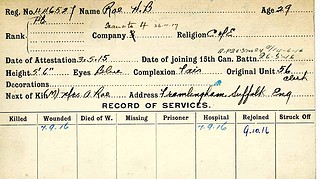 Reg. No. 446527 Name Roe. H.B Age 29
Rank Pte. Company Religion C of E
Date of Attestation 3.5.15 Date of joining 15th Can. Battn. 26.5.16
Height 5'6" Eyes Blue Complexion Fair Original Unit 56
Decorations clerk
Next of Kin Mrs. A. Roe Address Framlingham, Suffolk Eng
RECORD OF SERVICES.
Killed Wounded Died of W. Missing Prisoner Hospital Rejoined Struck Off
7.9.16 7.9.16 9.10.16